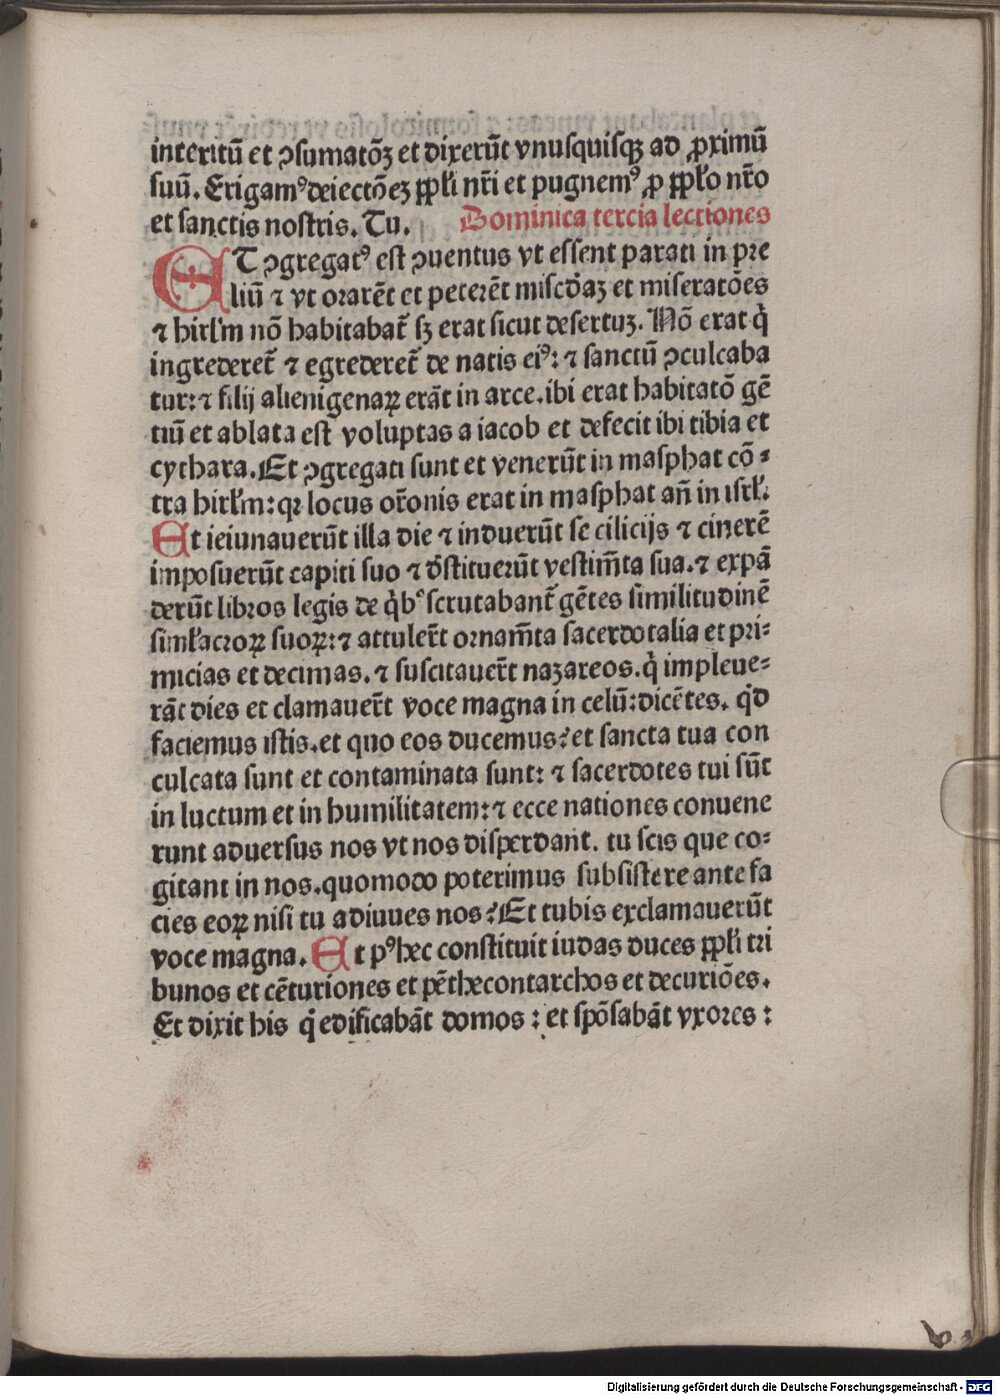 interitū et ꝯsumatōꝫ et dixerūt vnusquisqꝫ ad ꝓximū
suū. Erigamꝰ deiectōeꝫ ppl'i nr̄i et pugnemꝰ ꝓ ppl'o nr̄o
et sanctis nostris. Tu. Dominica tercia lectiones
ET ꝯgregatꝰ est ꝯuentus vt essent parati in pre
liū ⁊ vt orarēt et peterēt mīscd̄aꝫ et miseratōes
⁊ hirl'm nō habitabat̄ sꝫ erat sicut desertuꝫ. Nō erat q̇
ingrederet̄ ⁊ egrederet̄ de natis eiꝰ: ⁊ sanctū ꝯculcaba
tur: ⁊ filij alienigenaꝝ erāt in arce. ibi erat habitatō gē
tiū et ablata est voluptas a iacob et defecit ibi tibia et
cythara. Et ꝯgregati sunt et venerūt in masphat cō⸗
tra hirl'm: qꝛ locus or̄onis erat in masphat an̄ in isrl'.
Et ieiunauerūt illa die ⁊ induerūt se cilicijs ⁊ cinerē
imposuerūt capiti suo ⁊ d̄stituerūt vestim̄ta sua. ⁊ expā
derūt libros legis de q̇bꝰ scrutabant̄ gētes similitudinē
siml'acroꝝ suoꝝ: ⁊ attuler̄t ornam̄ta sacerdotalia et pri⸗
micias et decimas. ⁊ suscitauer̄t nazareos. q̇ impleue⸗
rāt dies et clamauer̄t voce magna in celū: dicētes. qͥd
faciemus istis. et quo eos ducemus? et sancta tua con
culcata sunt et contaminata sunt: ⁊ sacerdotes tui sūt
in luctum et in humilitatem: ⁊ ecce nationes conuene
runt aduersus nos vt nos disperdant. tu scis que co⸗
gitant in nos. quomodo poterimus subsistere ante fa
cies eoꝝ nisi tu adiuues nos? Et tubis exclamauerūt
voce magna. Et pꝰ hec constituit iudas duces ppl'i tri
bunos et cēturiones et pēthecontarchos et decuriōes.
Et dixit his q̇ edificabāt domos : et spōsabāt vxores :
Digitalisierung gefördert durch die Deutsche Forschungsgemeinschaft - DFG